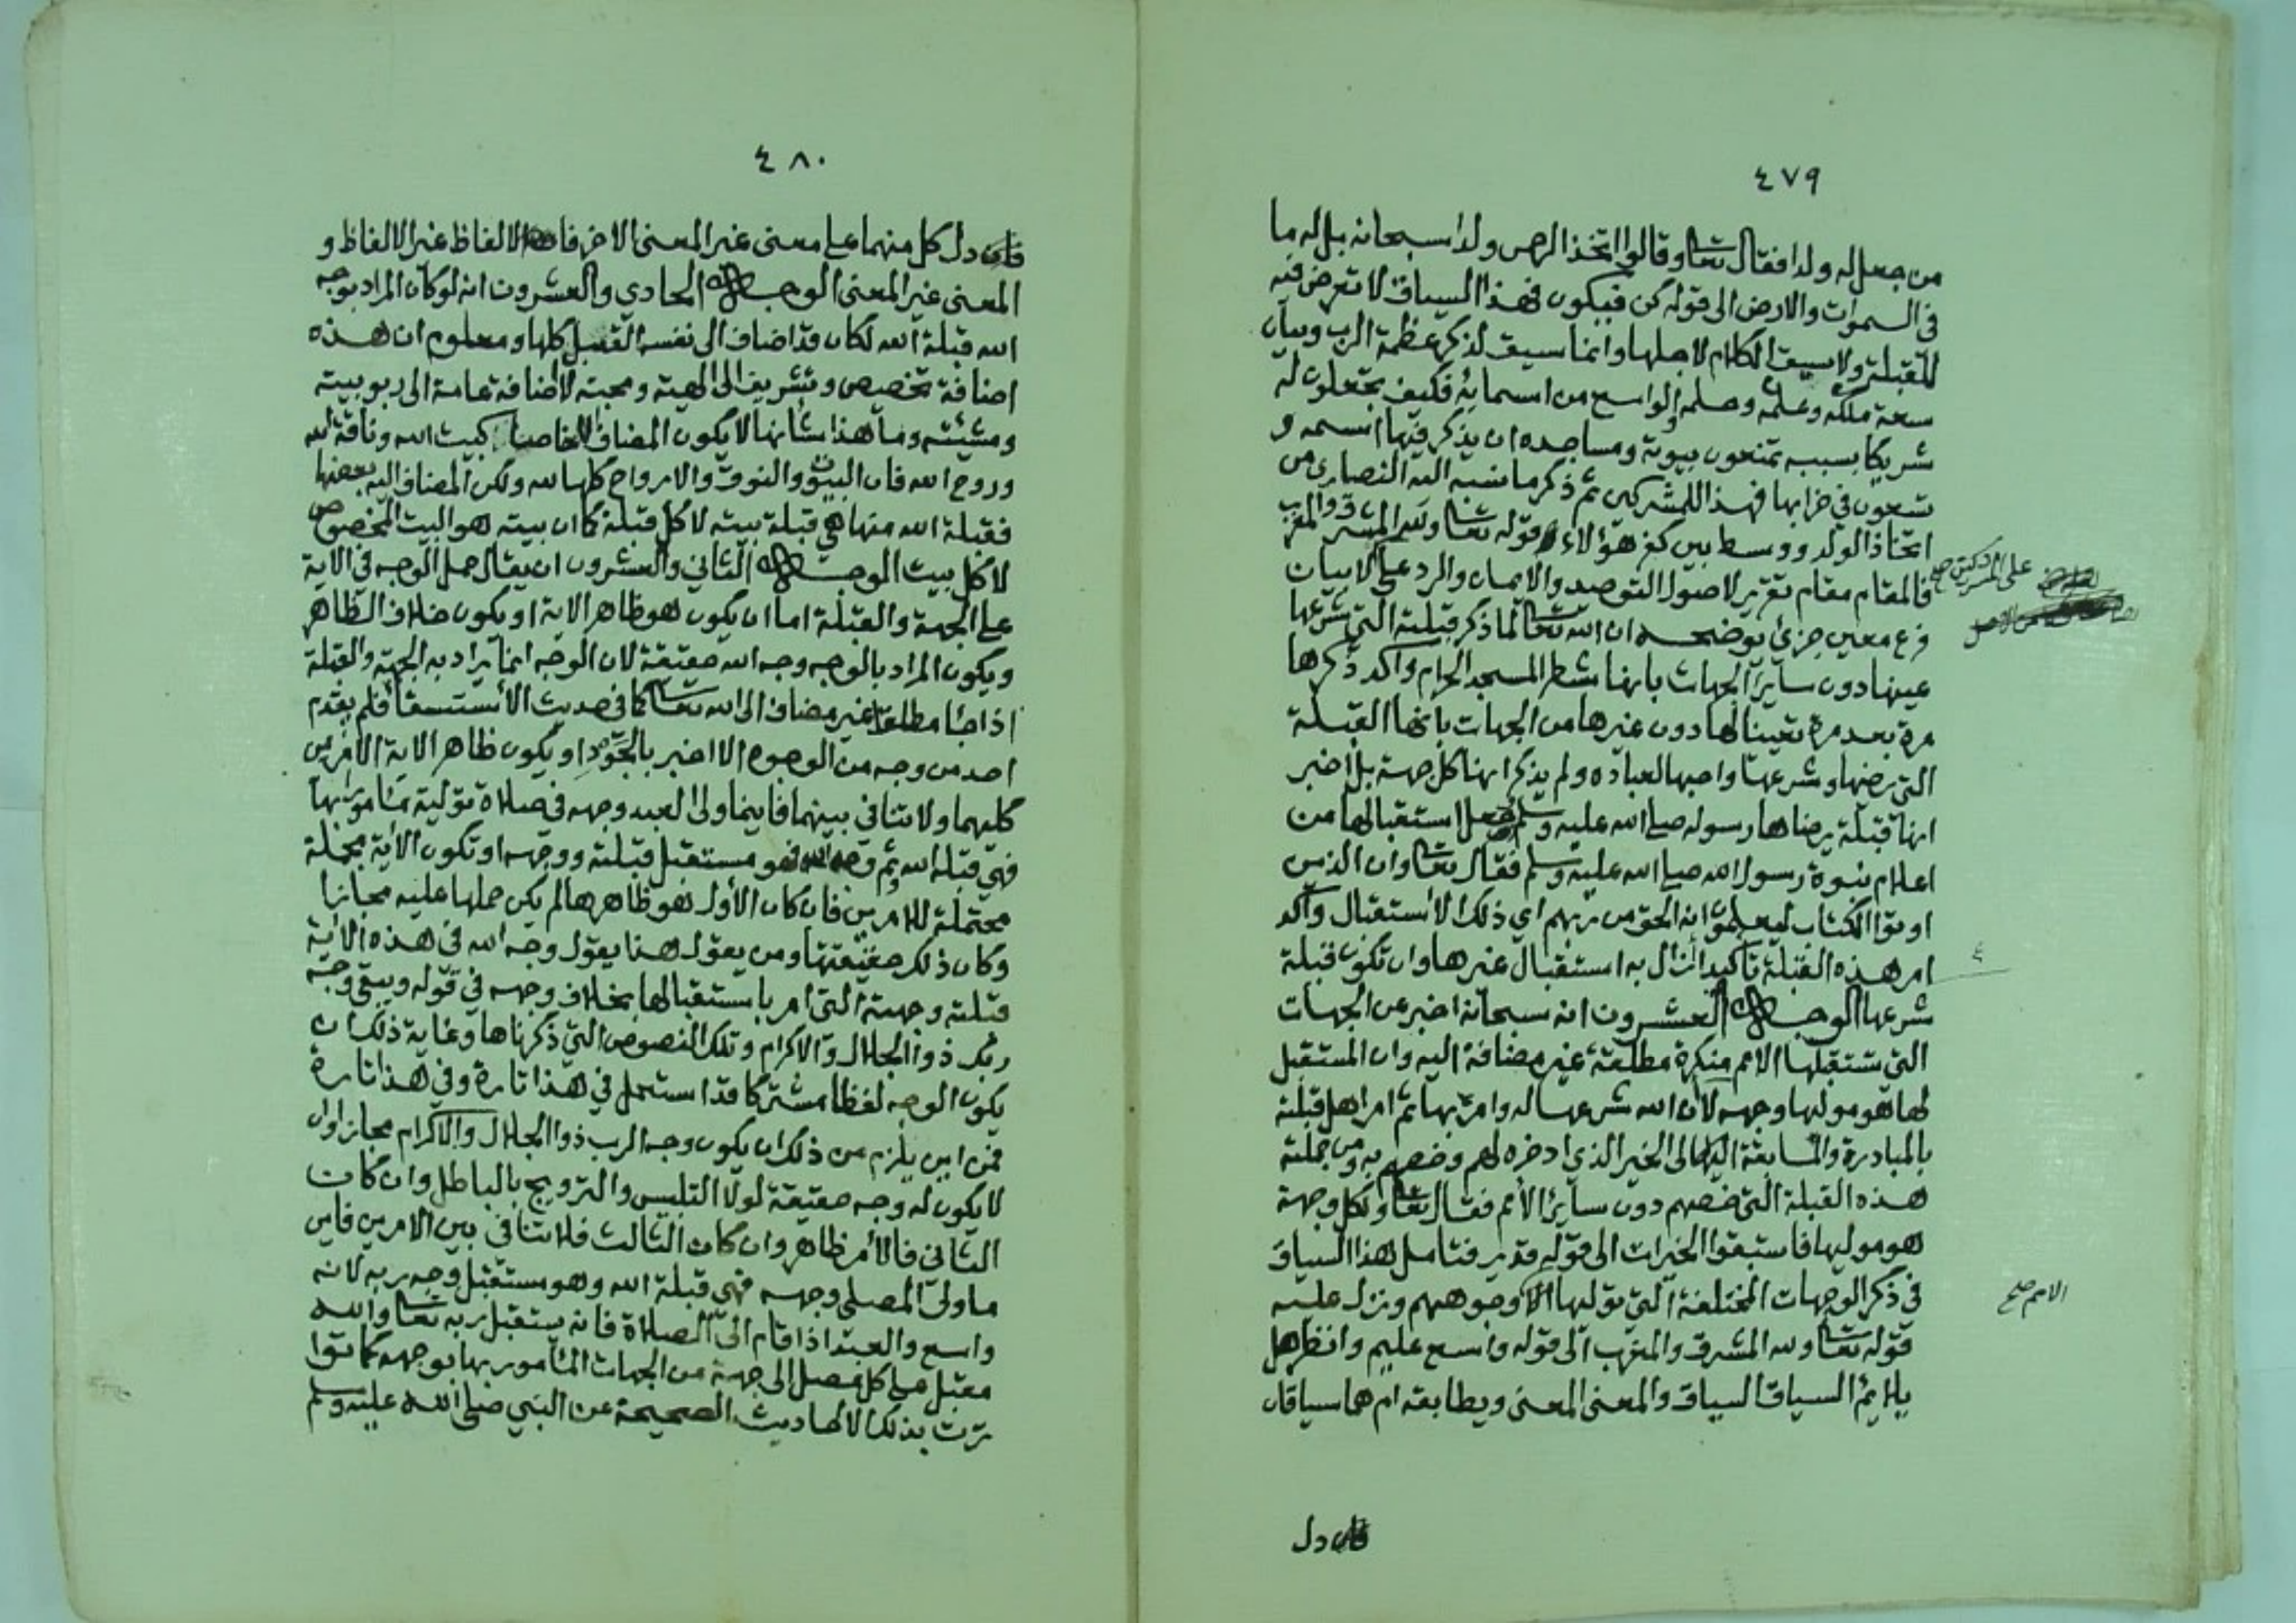 ٤٧٩
من جعل له ولدا فقال تعا وقالوا اتخذ الرحمن ولدا سبحانه بل له ما
في السموات والارض الى قوله كن فيكون فهذا السياق لا تعرض فيه
للقبلة ولا سيق الكلام لاجلها وانما سيق لذكر عظمة الرب وبيان
سعة ملكه وعلمه وحلمه والواسع من اسمائه فكيف تجعلون له
شريكا بسببه تمنعون بيوته ومساجده ان يذكر فيها اسمه و
تسعون في خرابها فهذا للمشركين ثم ذكر ما نسبه اليه النصارى من
اتخاذ الولد ووسط بين كفر هؤلاء قوله تعا ولله المشرق والمغرب
فالمقام مقام تقرير لاصول التوحيد والايمان والرد على المشركين صح لا بيان
فرع معين جزئ يوضحه ان الله تعا لما ذكر قبلته التي شرعها
عينها دون ساير الجهات بانها شطر المسجد الحرام واكد ذكرها
مرة بعد مرة تعيينا لها دون غيرها من الجهات بانها القبلة
التي رضيها وشرعها واحبها لعباده ولم يذكر انها كل جهة بل اخبر
انها قبلة يرضاها رسوله صلى الله عليه وسلم وجعل استقبالها من
اعلام نبوة رسول الله صلى الله عليه وسلم فقال تعا وان الذين
اوتوا الكتاب ليعلمون انه الحق من ربهم اي ذلك الاستقبال واكد
امر هذه القبلة تاكيدا ازال به استقبال غيرها وان تكون قبلة
شرعها الوجه العشرون انه سبحانه اخبر عن الجهات
التي تستقبلها الامم منكرة مطلقة غير مضافة اليه وان المستقبل
لها هو موليها وجهه لا ان الله شرعها له وامر بها ثم امر اهل قبلته
بالمبادرة والمسابقة اليها الى الخير الذي ادخره لهم وخصهم به ومن جملته
هذه القبلة التي خصهم دون ساير الامم فقال تعا ولكل وجهة
هو موليها فاستبقوا الخيرات الى قوله قدير فتامل هذا السياق
في ذكر الوجهات المختلفة التي توليها الامم صح وجوههم ونزل عليه
قوله تعا ولله المشرق والمغرب الى قوله واسع عليم وانظر هل
يلايم السياق السياق والمعنى المعنى ويطابقه ام هما سياقان
فان دل
٤٨٠
فان دل كل منهما على معنى غير المعنى الاخر فان الالفاظ غير الالفاظ و
المعنى غير المعنى الوجه الحادي والعشرون انه لو كان المراد بوجه
الله قبلة الله لكان قد اضاف الى نفسه القبل كلها ومعلوم ان هذه
اضافة تخصيص وتشريف الى الهيته ومحبته لا اضافة عامة الى ربوبيته
ومشيئته وما هذا شانها لا يكون المضاف الخاص الا كبيت الله وناقة الله
وروح الله فان البيوت والنوق والارواح كلها لله ولكن المضاف اليه بعضها
فقبلة الله منها هي قبلة بيته لا كل قبلة كما ان بيته هو البيت المخصوص
لا كل بيت الوجه الثاني والعشرون ان يقال حمل الوجه في الاية
على الجهة والقبلة اما ان يكون هو ظاهر الاية او يكون خلاف الظاهر
ويكون المراد بالوجه وجه الله حقيقة لان الوجه انما يراد به الجهة والقبلة
اذا جا مطلقا غير مضاف الى الله تعا كما في حديث الاستسقا فلم يقدم
احد من وجه من الوجوه الا اخبر بالجود او يكون ظاهر الاية الامرين
كليهما ولا تنافي بينهما فاينما ولى العبد وجهه في صلاة تولية مامور بها
فهي قبلة الله وثم وجه الله فهو مستقبل قبلته ووجهه او تكون الاية مجملة
محتملة للامرين فان كان الاول هو ظاهرها لم يكن حملها عليه مجازا
وكان ذلك حقيقتها ومن يقول هذا يقول وجه الله في هذه الاية
قبلته وجهته التي امر باستقبالها بخلاف وجهه في قوله ويبقى وجه
ربك ذو الجلال والاكرام وتلك النصوص التي ذكرناها وغاية ذلك ان
يكون الوجه لفظا مشتركا قد استعمل في هذا تارة وفي هذا تارة
فمن اين يلزم من ذلك ان يكون وجه الرب ذو الجلال والاكرام مجازا وان
لا يكون له وجه حقيقة لولا التلبيس والترويج بالباطل وان كان
الثاني فالامر ظاهر وان كان الثالث فلا تنافي بين الامرين فاين
ما ولى المصلي وجهه فهي قبلة الله وهو مستقبل وجه ربه لانه
واسع والعبد اذا قام الى الصلاة فانه يستقبل ربه تعا والله
مقبل على كل مصل الى جهة من الجهات المامور بها بوجهه كما توا
ترت بذلك الاحاديث الصحيحة عن النبي صلى الله عليه وسلم